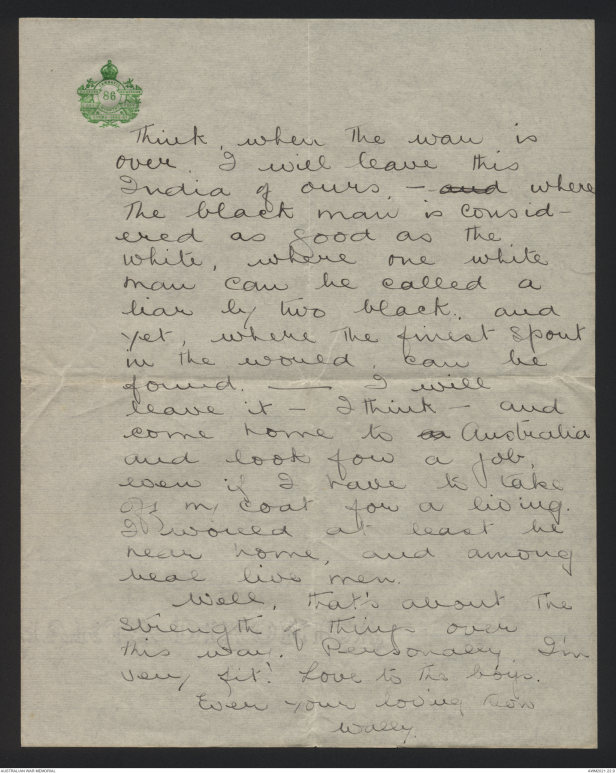 86
Think, when the war is
over, I will leave this
India of ours, – and where
the black man is consid-
ered as good as the
white, where one white
man can be called a
liar by two black, and
yet, where the finest sport
in the world, can be
found. —— I will
leave it – I think – and
come home to Australia
and look for a job,
even if I have to take
off my coat for a living.
I would at least be
near home, and among
real live men.
Well, that's about the
strength of things over
this way. Personally, I'm
very fit! Love to the boys.
Ever your loving son
Wally.
AUSTRALIAN WAR MEMORIAL